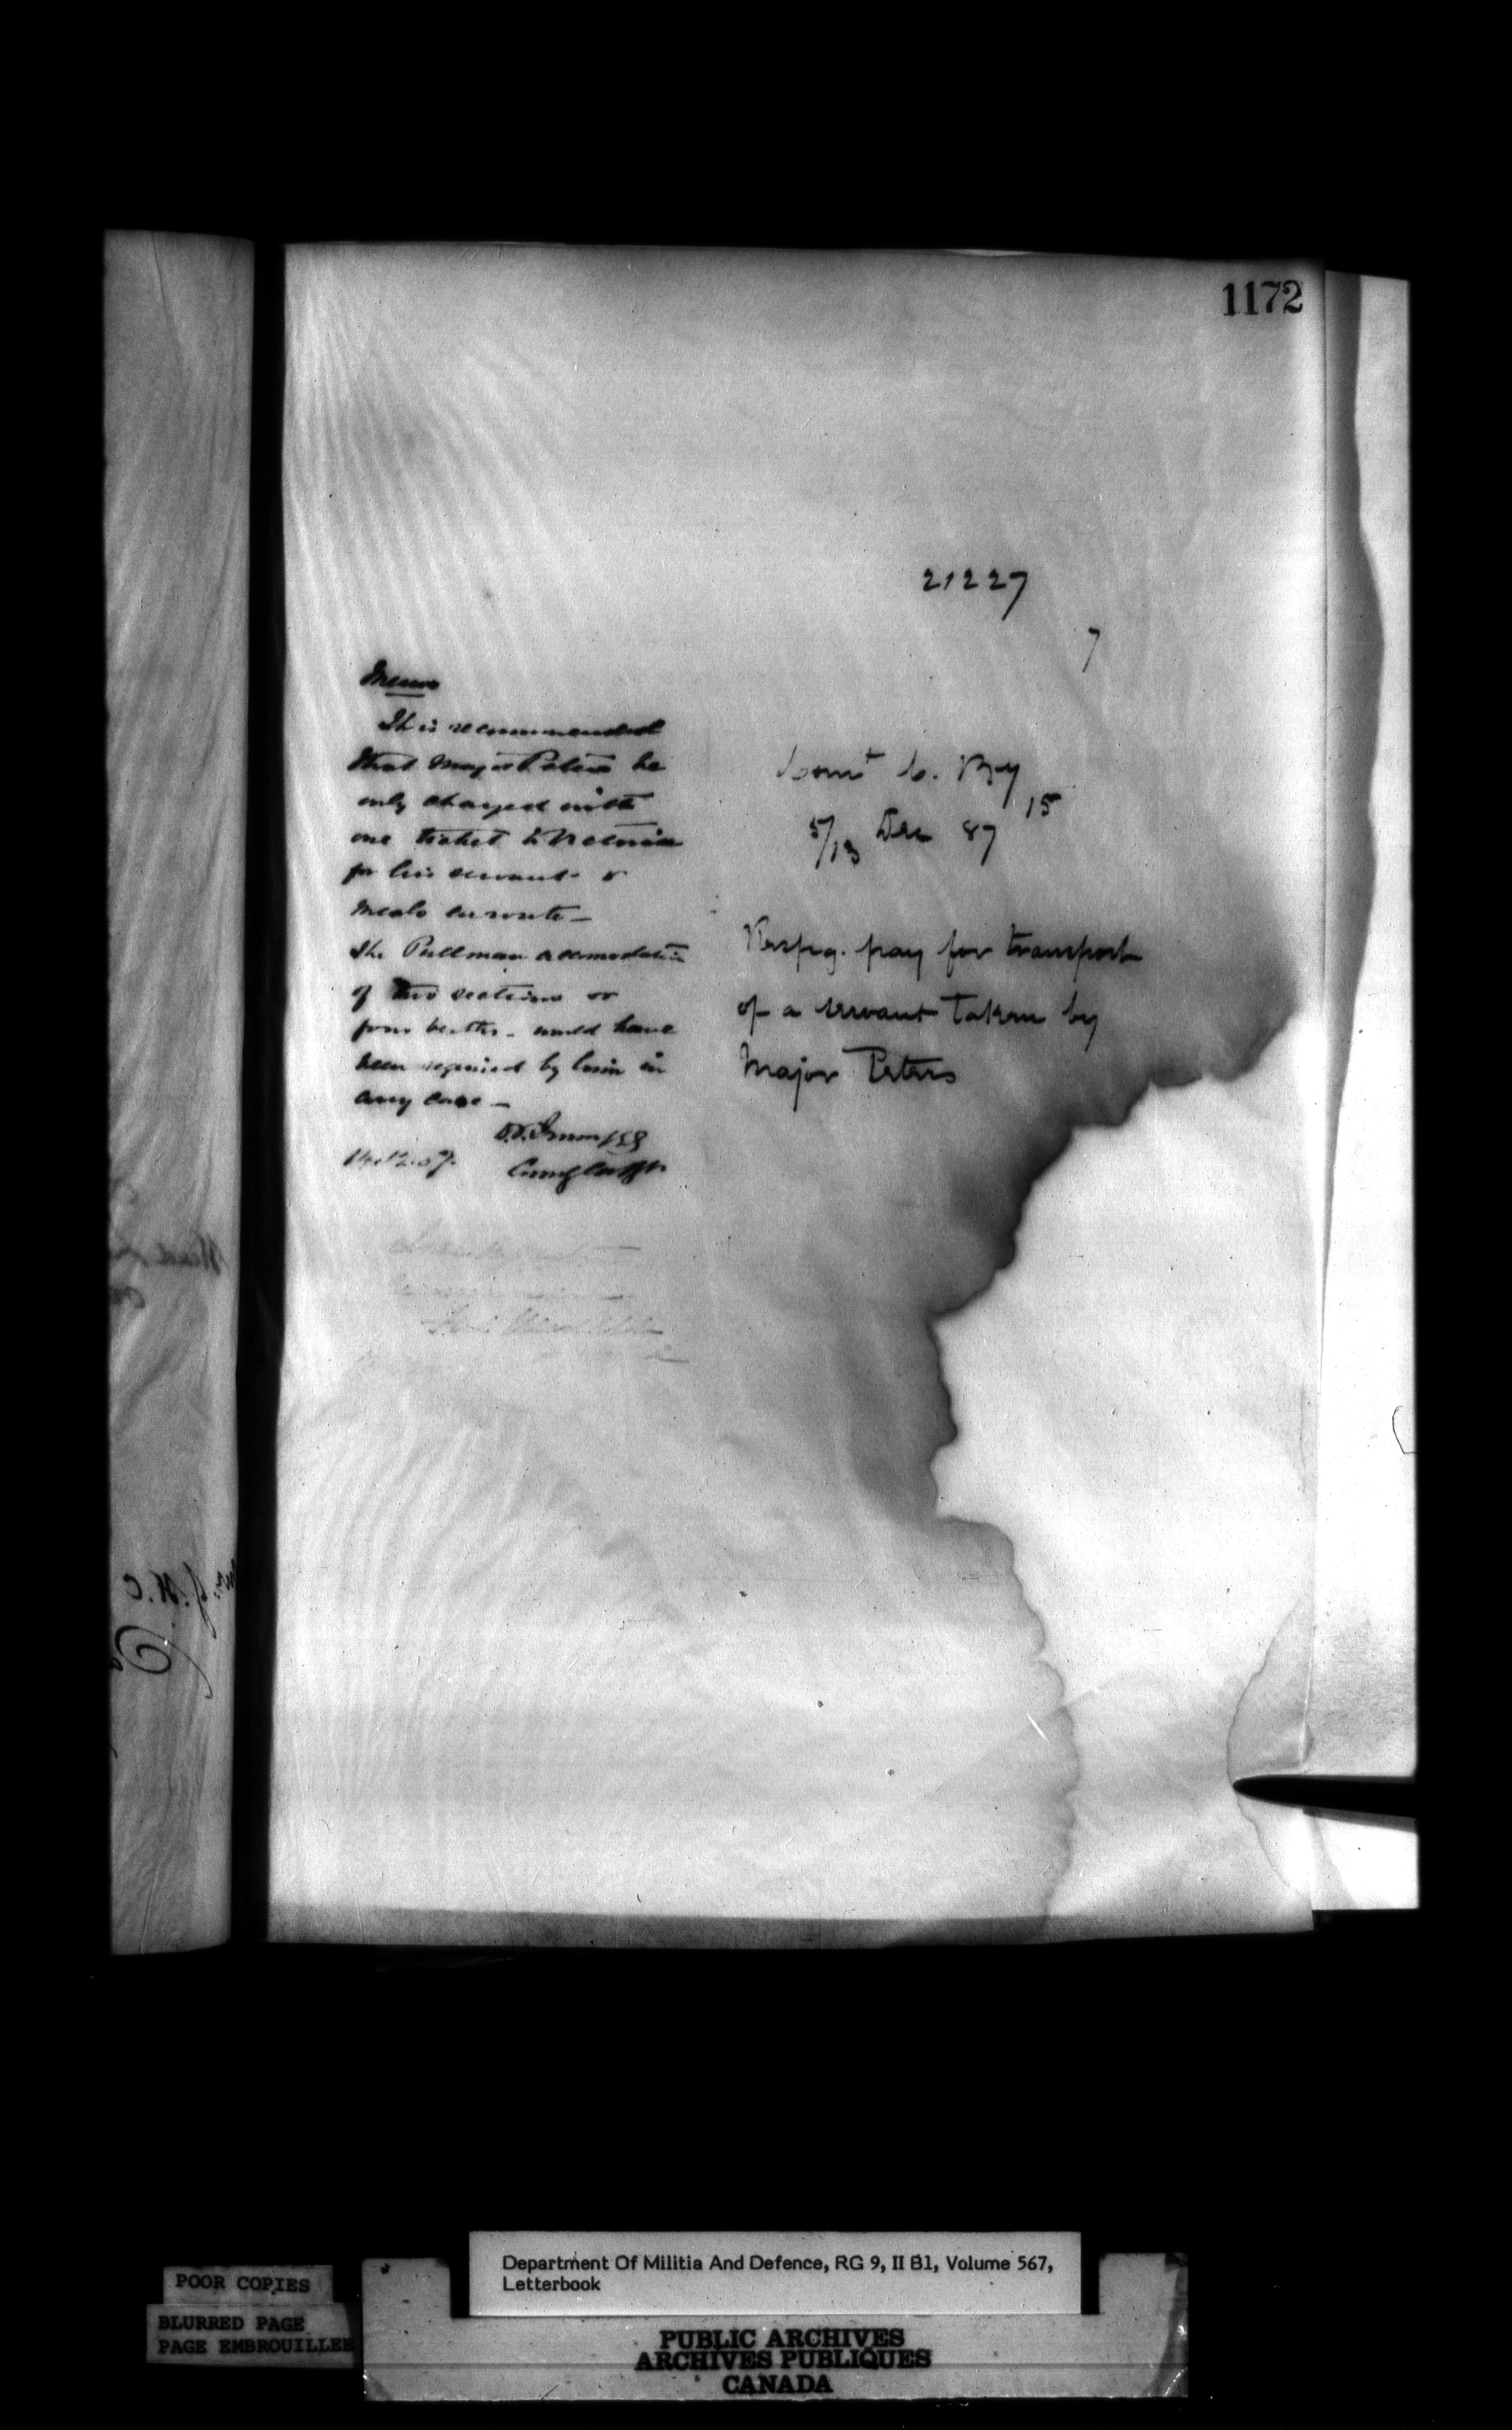 1172
21227
7
Memo
It is recommended
that Major Peters be
only charged with
one ticket to Victoria
for his servant &
meals en route —
The Pullman accomodation
of two sections or
four berths - would have
been required by him in
any case —
Comt C. Bty
15
5/13 Dec 87
Respg. pay for transport
of a servant taken by
Major Peters
Department Of Militia And Defence, RG 9, II B1, Volume 567,
Letterbook
POOR COPIES
BLURRED PAGE
PAGE EMBROUILLEE
PUBLIC ARCHIVES
ARCHIVES PUBLIQUES
CANADA